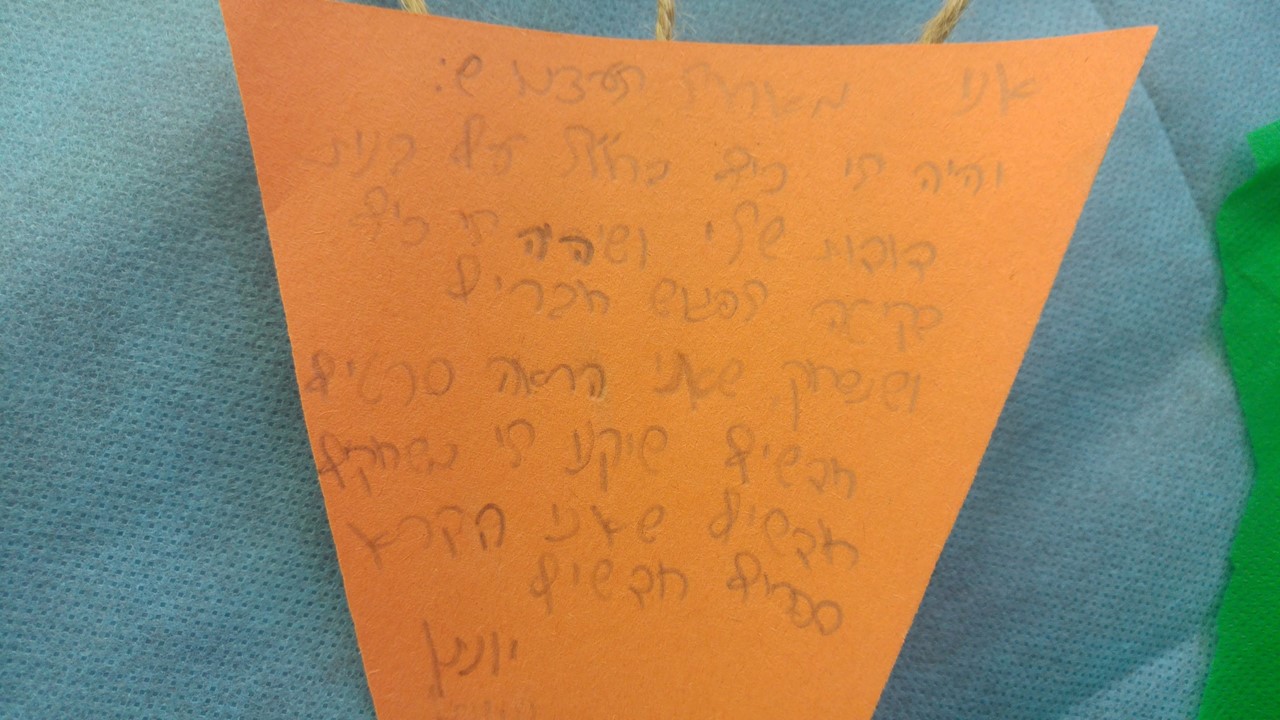 אני מאחלת לעצמי ש:
יהיה לי כיף בחו"ל
בובות שלי ושיהיה לי כיף
בקיץ לפגוש חברים
ושנשחק, שאני הראה סרטים
חדשים שיקנו לי משחקים
חדשים שאני הקרא
ספרים חדשים
יונתן